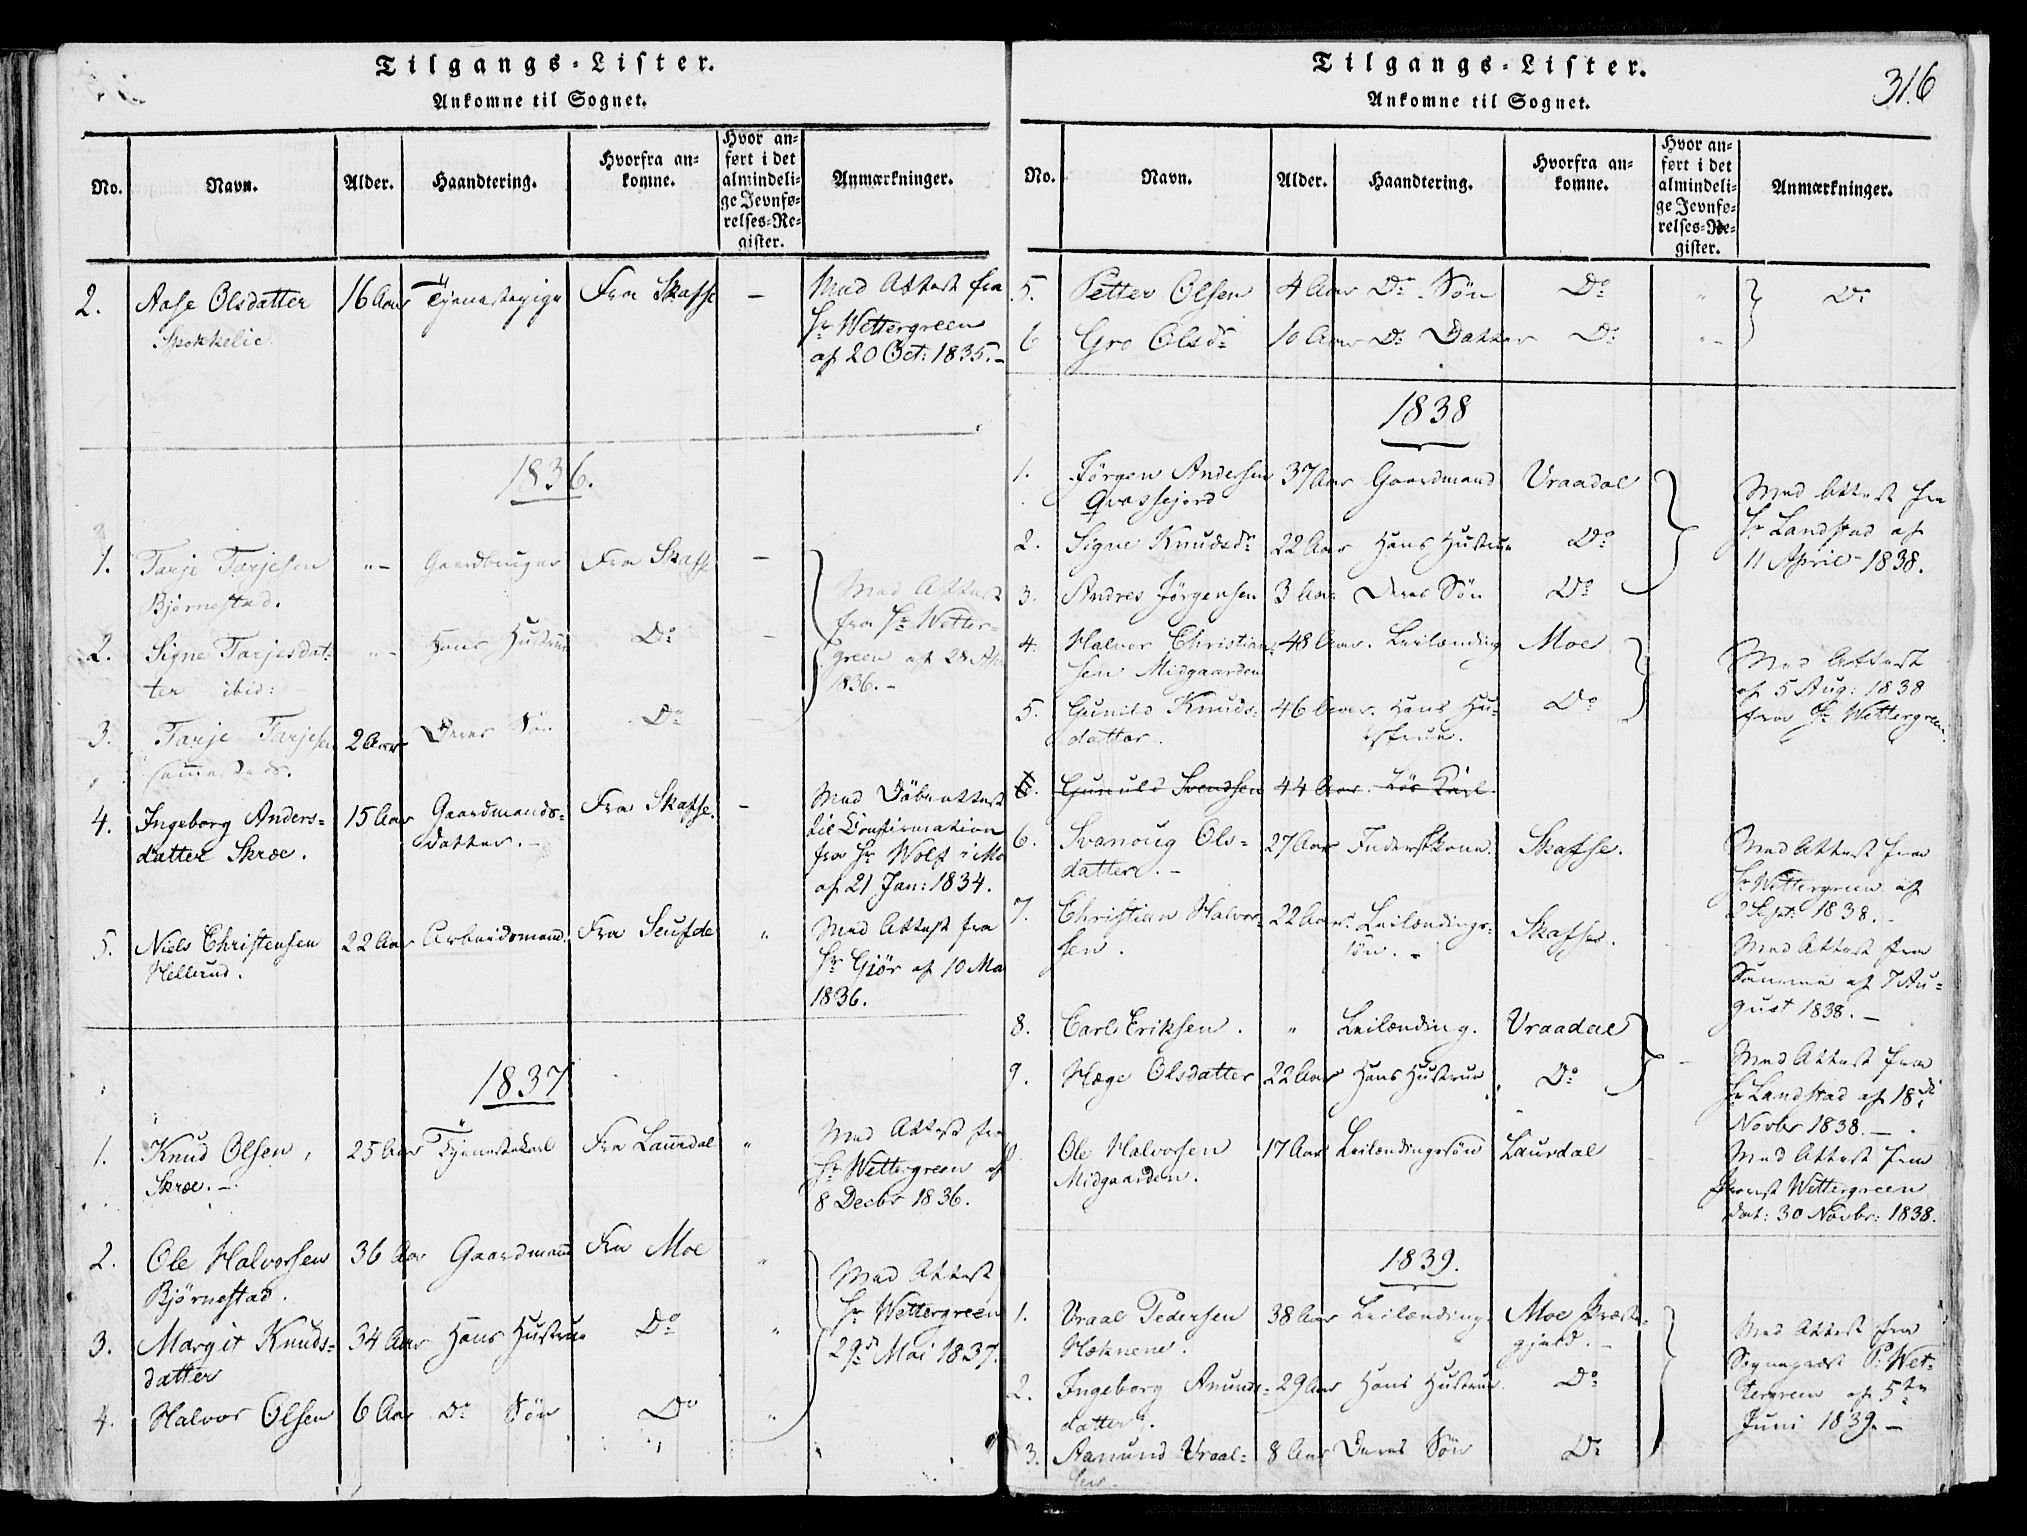 Tilgangs-Lister.
Ankomne til Sognet.
No. Navn. Alder. Haandtering. Hvorfra ankomne. Hvor anført i det almindelige Jevnførelses-Register. Anmærkninger.
2. Aase Olsdatter 16 Aar Tjenestepige Fra Skafse — Med Attest fra
Spokkelie. Hr Wettergreen
af 20 Oct: 1835.-
1836.
1. Tarje Tarjesen "- Gaardbruger Fra Skafse —
Björnestad. Med Attest
2. Signe Tarjesdat- "- Hans Hustrue Do - fra Hr Wetter-
ter ibid: green af 28 Apr
1836.-
3. Tarje Tarjesen 2 Aar Deres Sön Do
sammesteds.
4. Ingeborg Anders- 15 Aar Gaardmands- Fra Skafse. - Med Döbeattest
datter Skræe. Datter.- til Confirmation
fra Hr Wolf i Mo
af 21 Jan: 1834.
5. Niels Christensen 22 Aar Arbeidsmand. Fra Seufde " Med Attest fra
Hellerud. Hr Gjör af 10 Ma
1836.
1837
1. Knud Olsen, 25 Aar Tjenestekarl Fra Laurdal " Med Attest fra
Skræe.- Hr Wettergreen af
8 Decbr 1836.
2. Ole Halvorsen 36 Aar Gaardmand Fra Moe " Med Attest
Björnestad. Hr Wettergreen
3. Margit Knuds- 34 Aar Hans Hustrue Do " 29d Mai 1837.
datter
4. Halvor Olsen 6 Aar Do Sön Do "
Tilgangs-Lister.
Ankomne til Sognet.
316
No. Navn. Alder. Haandtering. Hvorfra ankomne. Hvor anført i det almindelige Jevnførelses-Register. Anmærkninger.
5. Petter Olsen 4 Aar Do Sön Do " Do
6 Gro Olsdr 10 Aar Do Datter Do "-
1838
1. Jörgen Andersen 37 Aar Gaardmand Vraadal Med Attest fra
Qvassejord Hr Landstad af
2. Signe Knudsdr 22 Aar Hans Hustrue Do 11 April 1838.
3. Andres Jörgensen 3 Aar Deres Sön Do
4. Halvor Christian- 48 Aar. Leilænding Moe Med Attest
sen Midgaarden af 5 Aug: 1838
5. Gunild Knuds- 46 Aar. Hans Hu- Do fra Hr Wettergreen
datter. strue.
6. Gunuld Svendsen 44 Aar. Lös Karl
6. Svanoug Ols- 27 Aar Inderstkone. Skafse. Med Attest fra
datter.- Hr Wettergreen af
2 Sept: 1838.-
7. Christian Halvor- 22 Aar. Leilændings- Skafse. Med Attest fra
sen. sön.- Samme af 7 Au-
gust 1838.-
8. Carl Eriksen. " Leilænding. Vraadal Med Attest fra
9. Hæge Olsdatter 22 Aar Hans Hustrue Do - Hr Landstad af 18de
Novbr 1838.-
Ole Halvorsen 17 Aar Leilændingssön Laurdal Med Attest fra
Midgaarden. Provst Wettergreen
dat: 30 Novbr: 1838.
1839.
1. Vraal Pedersen 38 Aar Leilænding. Moe Præste- Med Attest fra
gjeld.- Sogneprest P. Wet-
2. Ingeborg Anunds- 29 Aar Hans Hustrue. Do tergreen af 5te
datter. Juni 1839.-
3. Aanund Vraal- 8 Aar Deres Sön Do
sen.